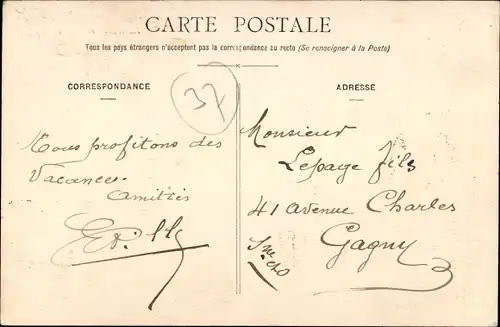 CARTE POSTALE
Tous les pays étrangers n'acceptent pas la correspondance au recto (Se renseigner à la Poste)
CORRESPONDANCE
37
Nous profitons des
Vacances.
Amitiés
ADRESSE
Monsieur
Lepage fils
41 Avenue Charles
Gagny